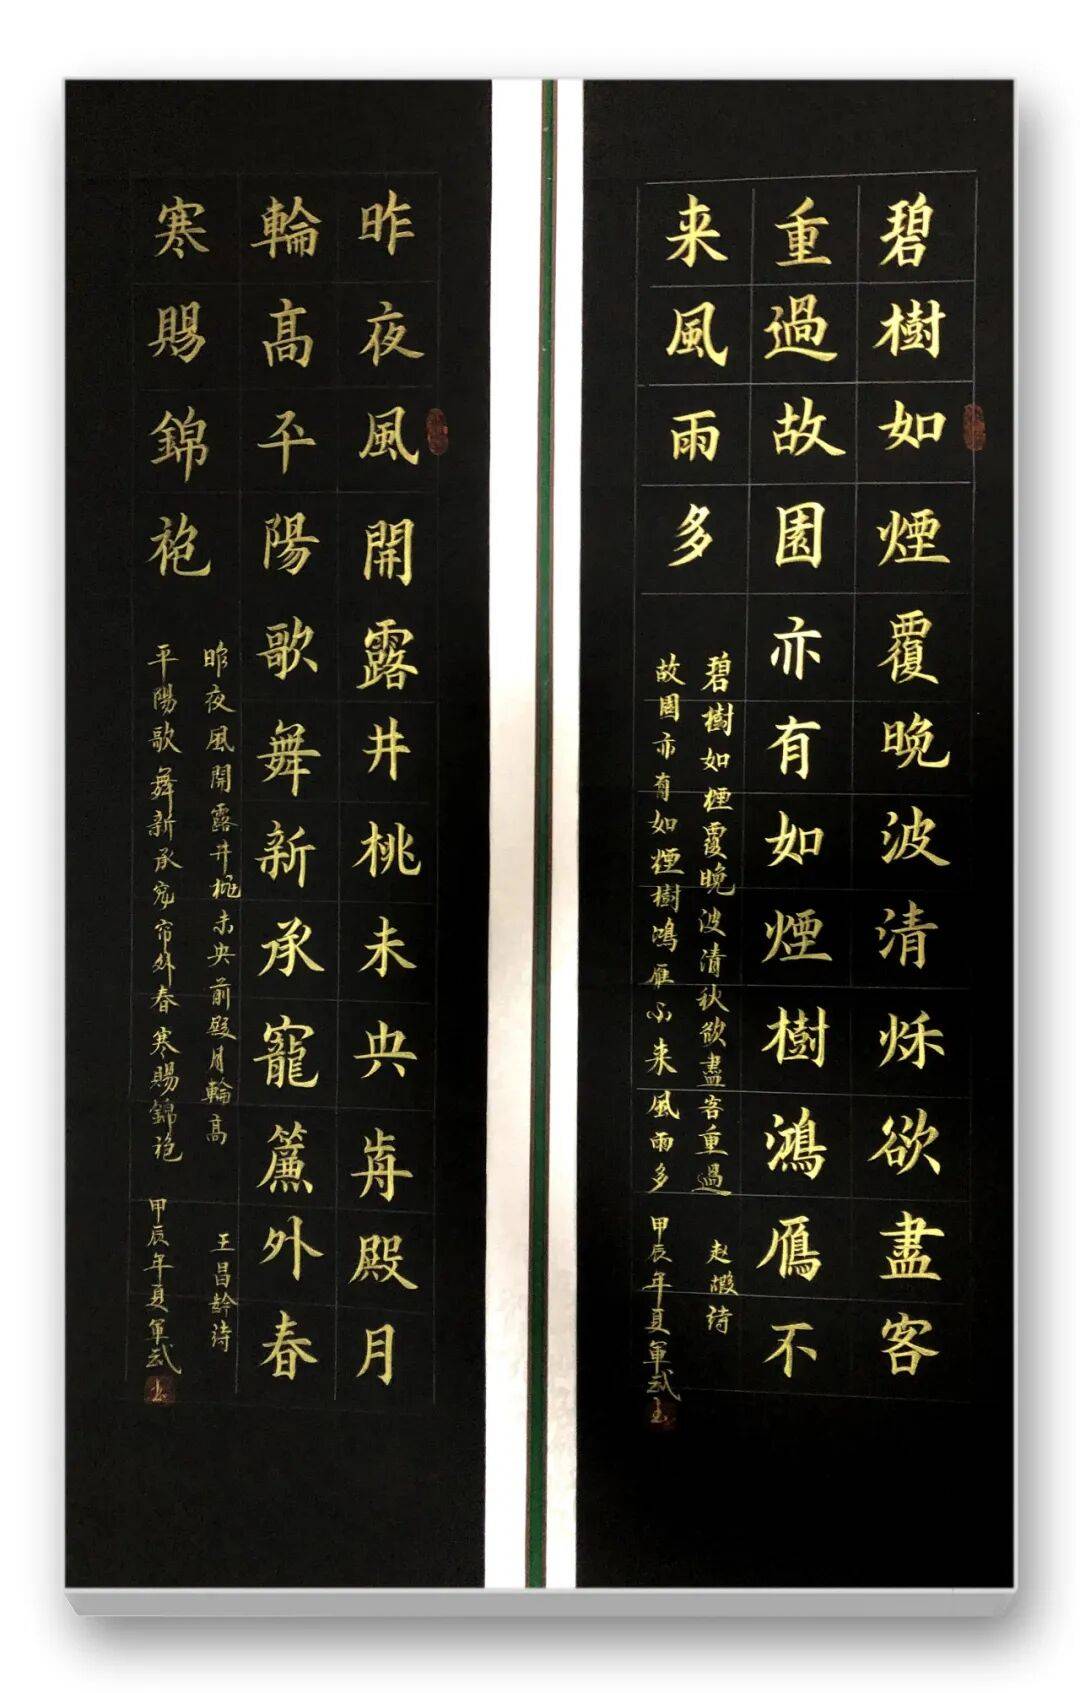 碧樹如煙覆晚波清烁欲盡客
重過故園亦有如煙樹鴻鴈不
来風雨多
碧樹如煙覆晚波清秋欲盡客重過
赵嘏诗
故園亦有如煙樹鴻雁不来風雨多
甲辰年夏軍武书
昨夜風開露井桃未央歬殿月
輪高平陽歌舞新承寵簾外春
寒賜錦袍
昨夜風開露井桃未央前殿月輪高
王昌龄诗
平陽歌舞新承寵帘外春寒賜錦袍
甲辰年夏軍武书